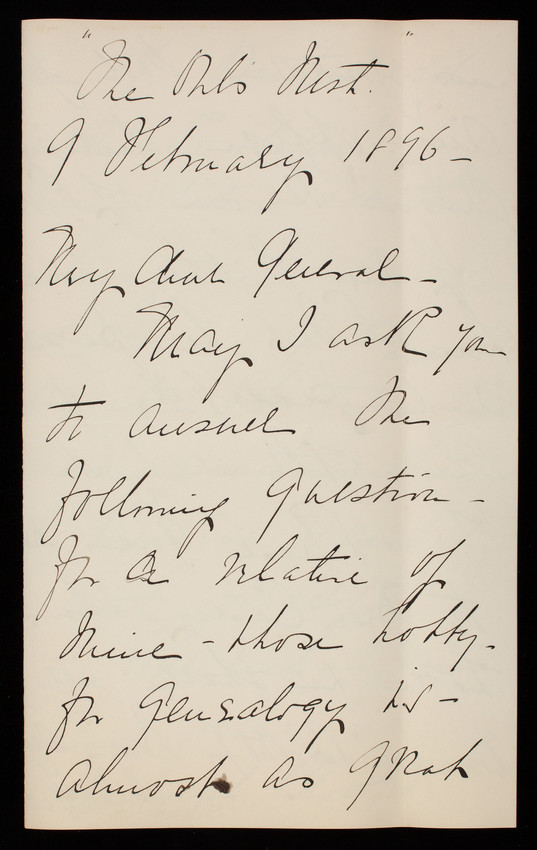 "The Owl's Nest."
9 February 1896 -
My dear General -
May I ask you
to answer the
following question -
for a relative of
mine - whose hobby -
for genealogy is -
almost as great